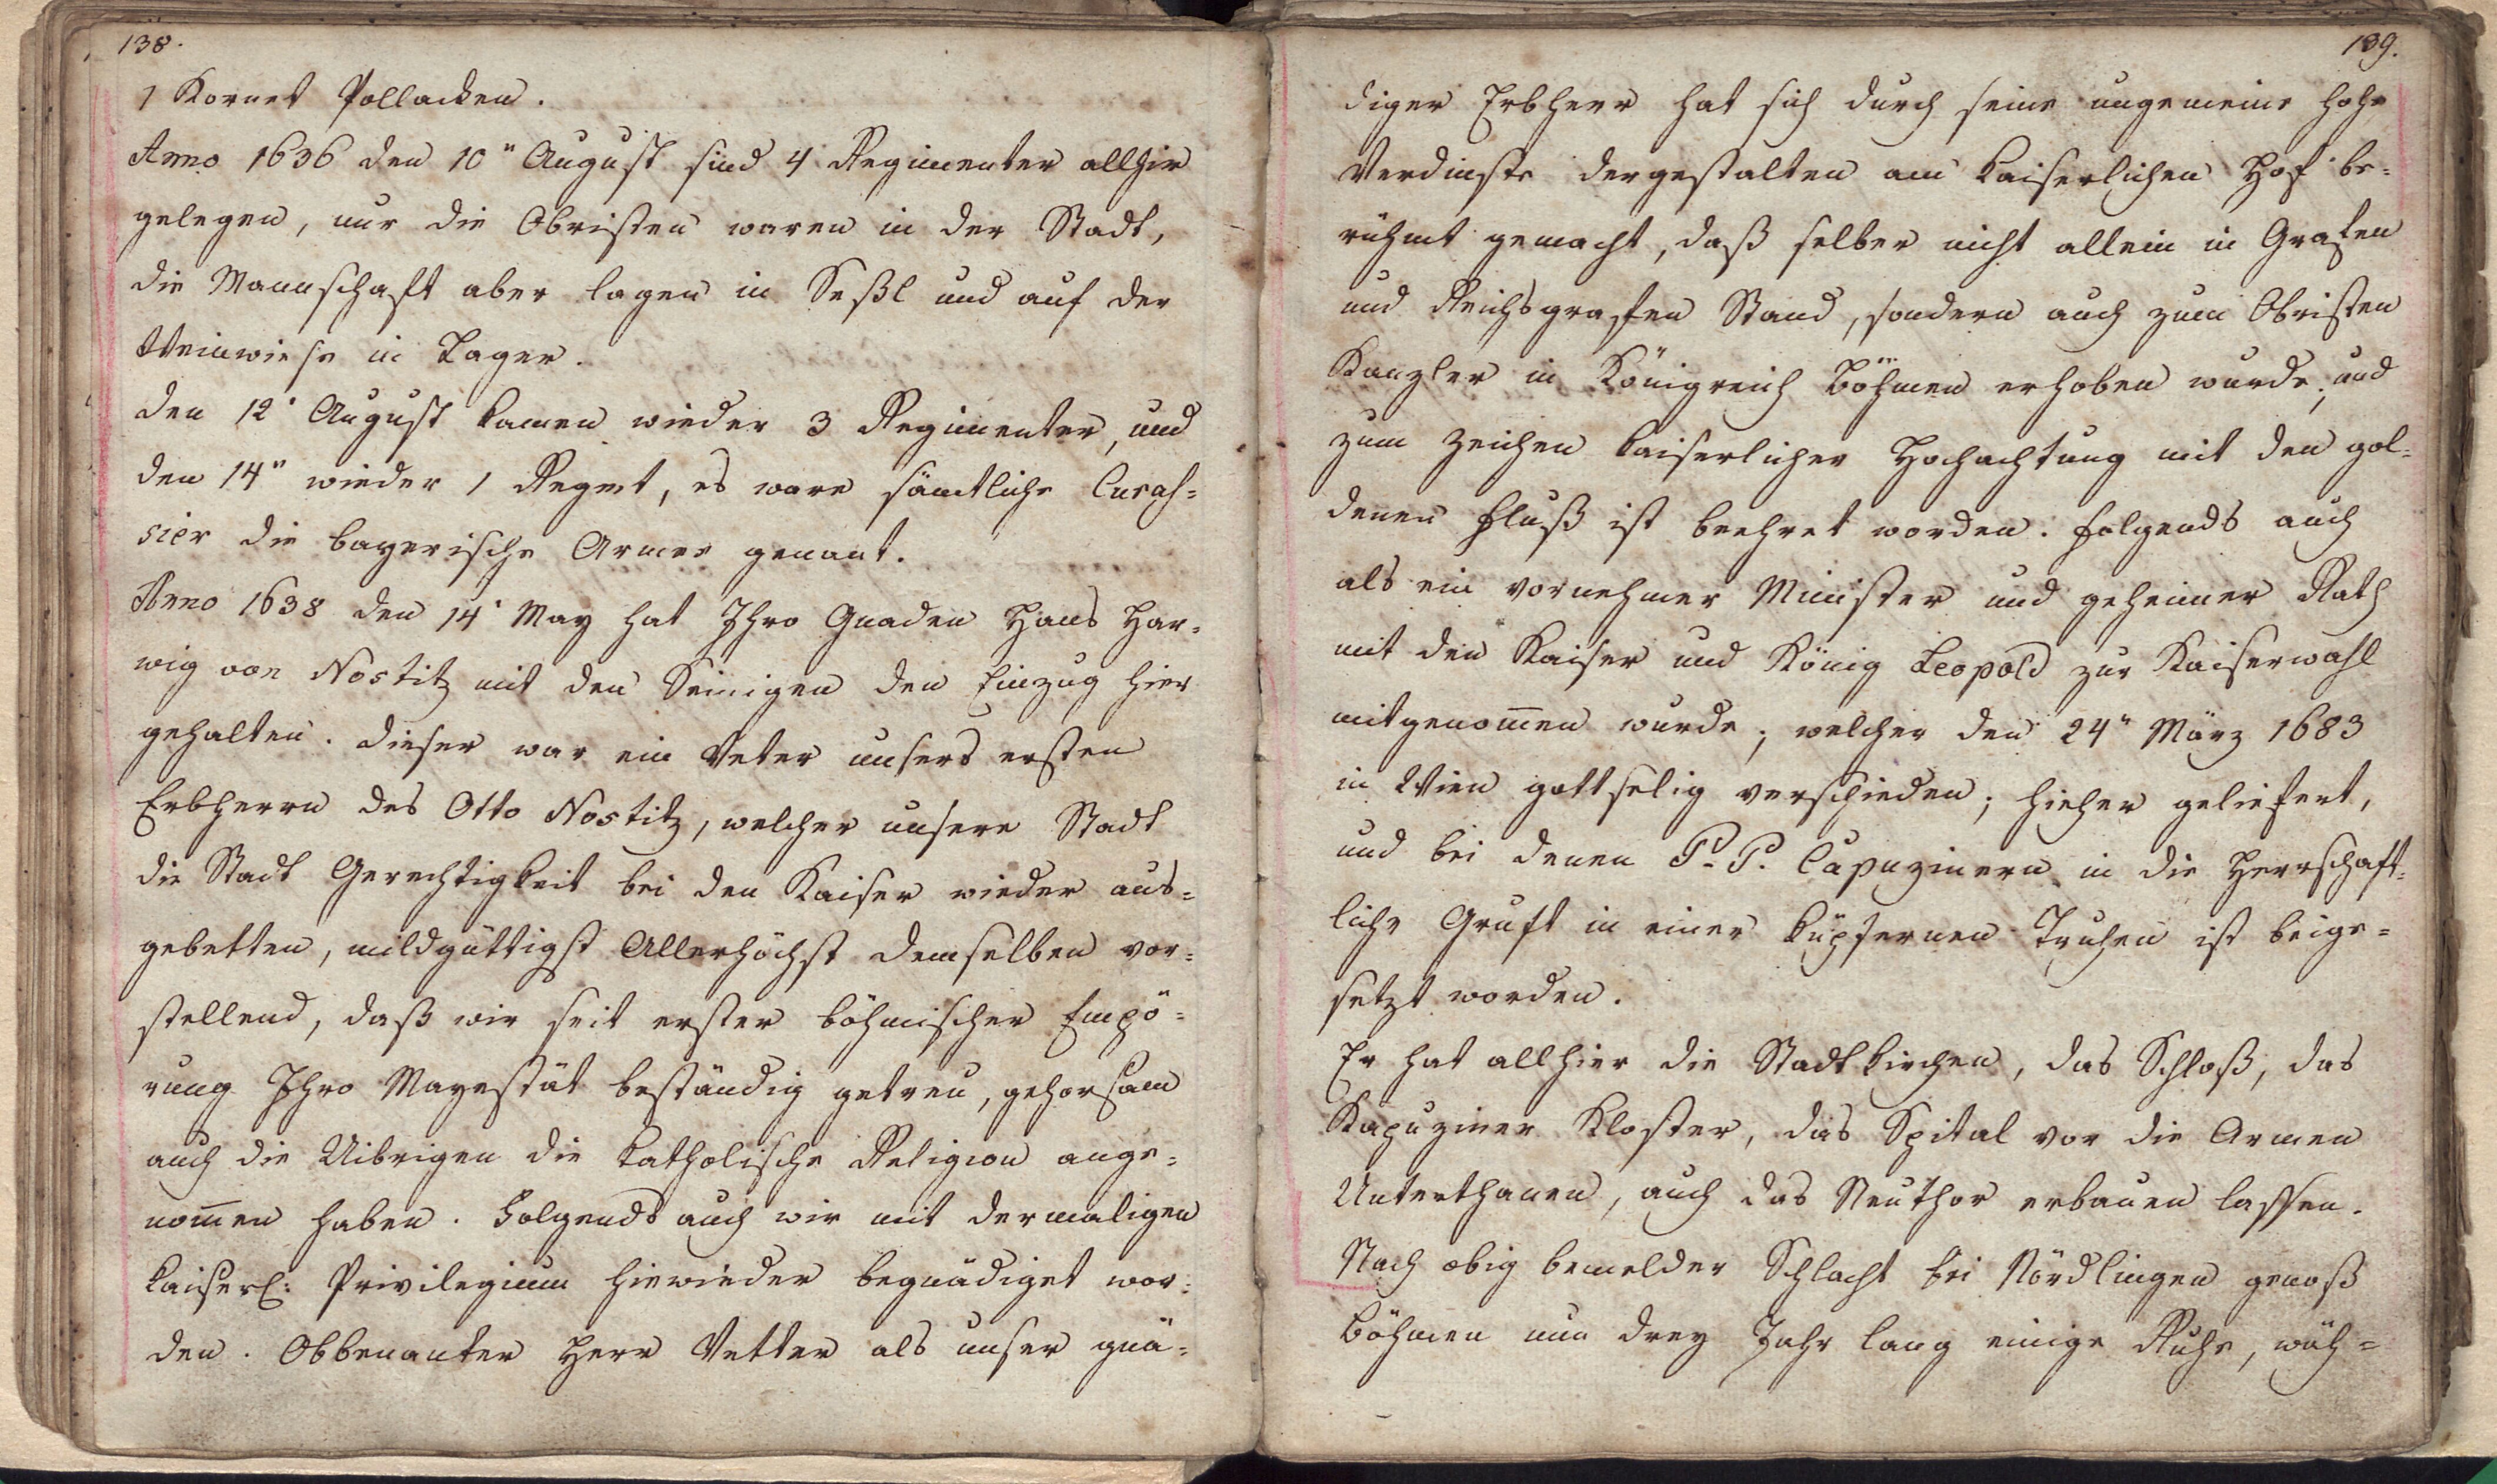 138.
1 Kornet Pollacken.
Anno 1636 den 10" August sind 4 Regimenter allhir
gelegen, nur die Obristen waren in der Stadt,
die Mannschaft aber lagen in Seßl und auf der
Steinwiese in Lager.
den 12' August kamen wieder 3 Regimenter, und
den 14" wieder 1 Regmt, es ware sämtliche Curas=
sier die bayerische Armee genant.
Anno 1638 den 14' May hat Ihro Gnaden Hans Har=
wig von Nostitz mit den Seinigen den Einzug hier
gehalten. dieser war ein Veter unsers ersten
Erbherrn des Otto Nostitz, welcher unsere Stadt
die Stadt Gerechtigkeit bei den Kaiser wieder aus=
gebetten, mildgüttigst Allerhöchst demselben vor=
stellend, daß wir seit erster böhmischer Empö=
rung Ihro Mayestät beständig getreu, gehorsam
auch die Uibrigen die katholische Religion ange=
nom̅en haben. Folgends auch wir mit dermaligen
kaiserl: Privilegium hiewieder begnädiget wor=
den. Obbenanter Herr Vetter als unser gnä=
139.
diger Erbherr hat sich durch seine ungemeine hohe
Verdinste dergestalten am kaiserlichen Hof be=
rühmt gemacht, daß selber nicht allein in Grafen
und Reichsgrafen Stand, sondern auch zum Obristen
Kanzler in Königreich Böhmen erhoben wurde; und
zum Zeichen kaiserlicher Hochachtung mit den gol=
denen Fluß ist beehret worden. folgends auch
als ein vornehmer Minister und geheimer Rath
mit den Kaiser und König Leopold zur Kaiserwahl
mitgenom̅en wurde; welcher den 24" März 1683
in Wien gottselig verschieden; hieher geliefert,
und bei denen P. P. Capuzinern in die Herrschaft=
liche Gruft in einer küpfernen Truhen ist beige=
setzt worden.
Er hat allhier die Stadtkirchen, das Schloß, das
Kapuziner Kloster, das Spital vor die Armen
Unterthanen, auch das Neuthor erbauen lassen.
Nach obig bemelder Schlacht bei Nördlingen genoß
Böhmen nun drey Jahr lang einige Ruhe, wäh=